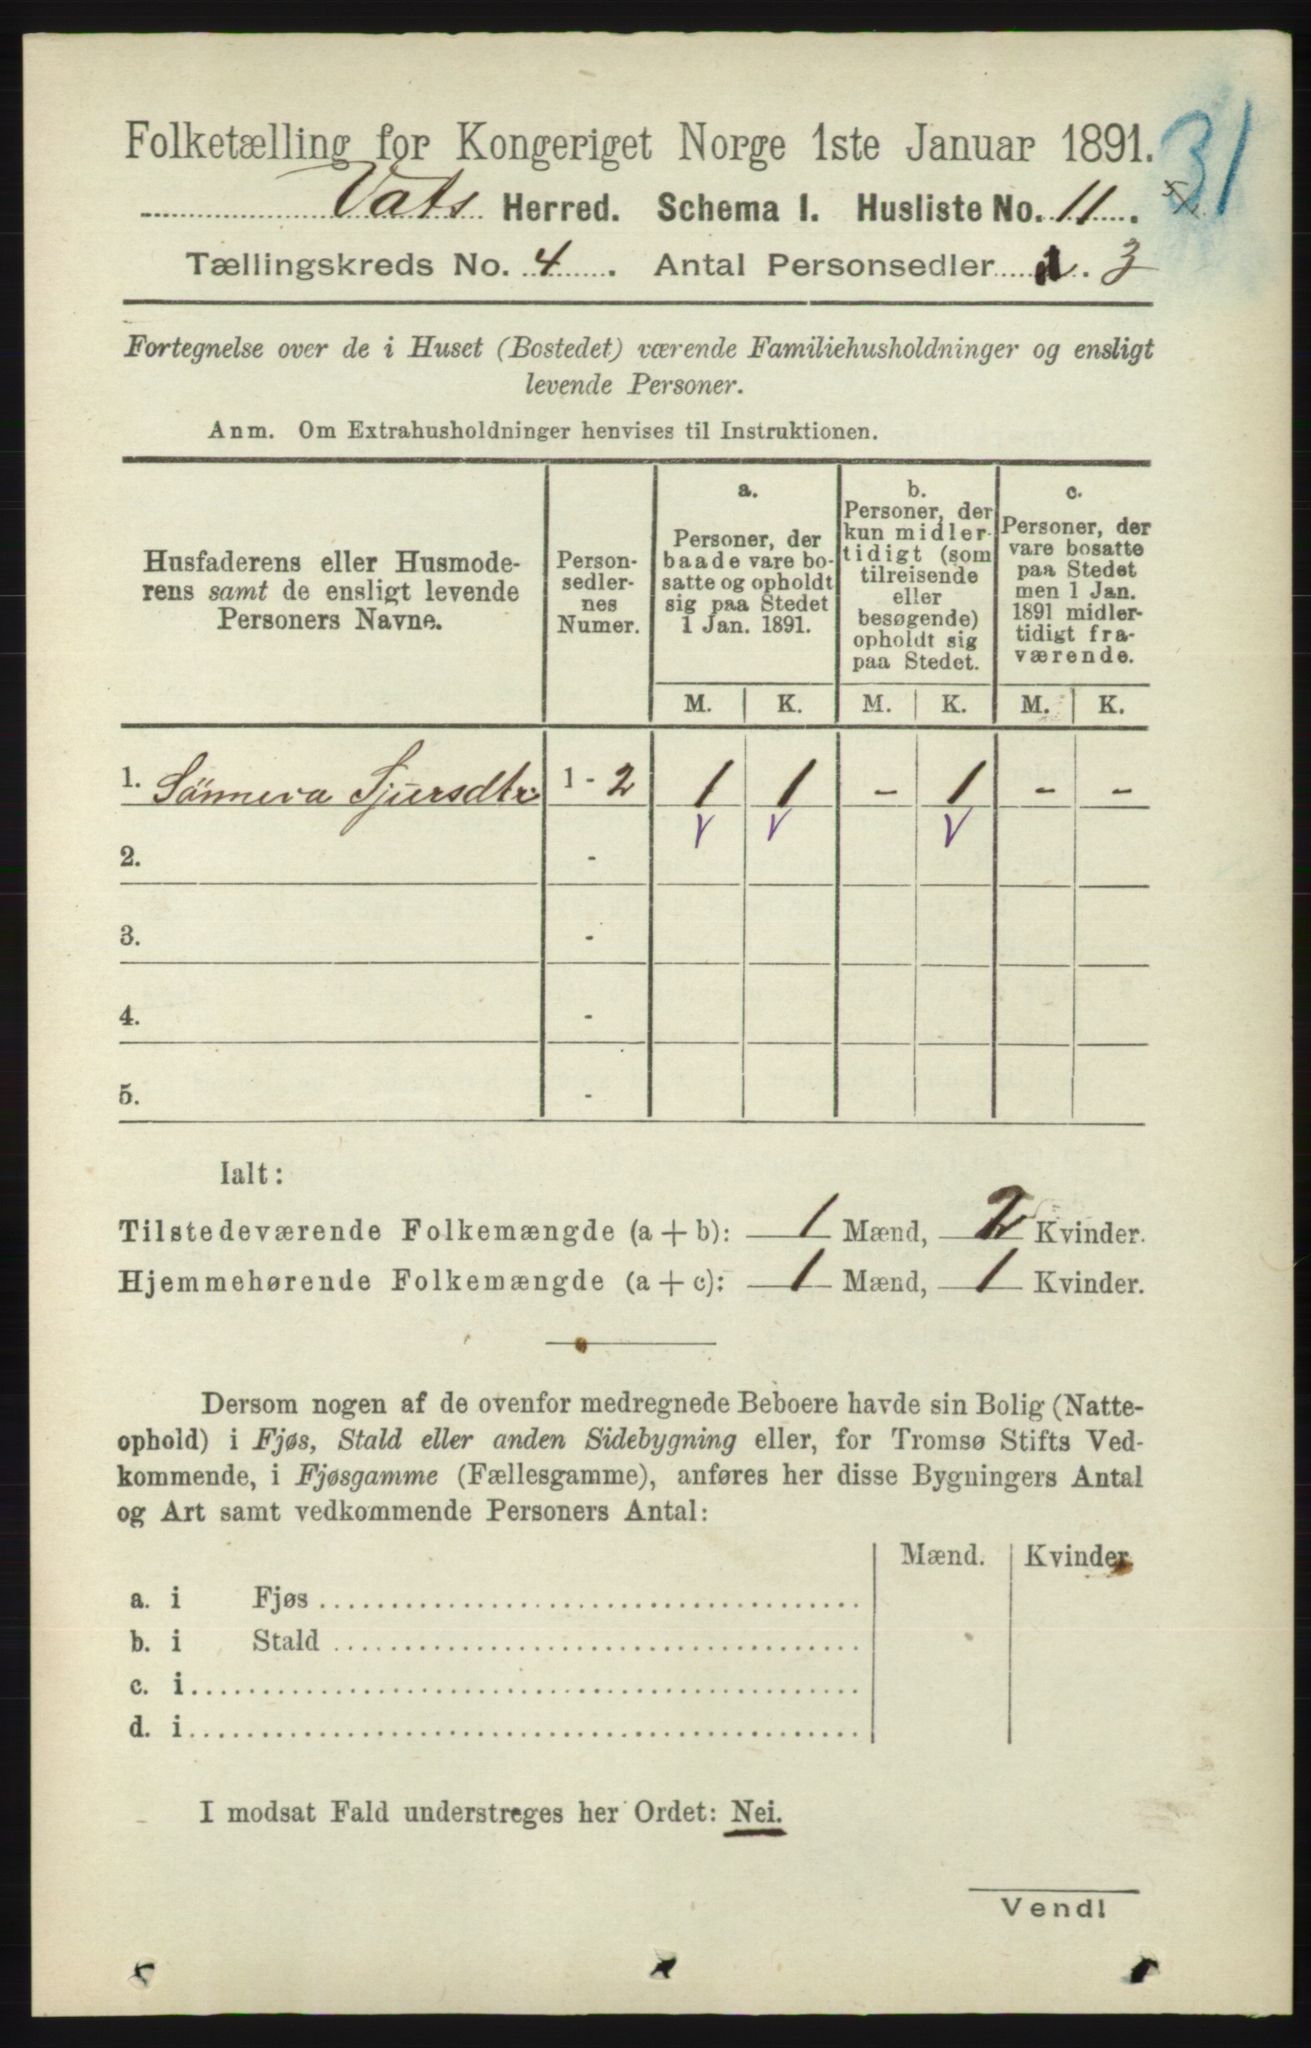 Folketælling for Kongeriget Norge 1ste Januar 1891.
31
Vats Herred. Schema I. Husliste No. 11.
Tællingskreds No. 4. Antal Personsedler 3
Fortegnelse over de i Huset (Bostedet) værende Familiehusholdninger og ensligt
levende Personer.
Anm. Om Extrahusholdninger henvises til Instruktionen.
Husfaderens eller Husmode-
rens samt de ensligt levende
Personers Navne.
Person-
sedler-
nes
Numer.
a.
Personer, der
baade vare bo-
satte og opholdt
sig paa Stedet
1 Jan. 1891.
b.
Personer, der
kun midler-
tidigt (som
tilreisende
eller
besøgende)
opholdt sig
paa Stedet.
c.
Personer, der
vare bosatte
paa Stedet
men 1 Jan.
1891 midler-
tidigt fra-
værende.
M. K. M. K. M. K.
1. Sönneva Sjursdtr 1 - 2 1 1 - 1 - -
2. -
3. -
4. -
5. -
Ialt:
Tilstedeværende Folkemængde (a + b): 1 Mænd, 2 Kvinder.
Hjemmehørende Folkemængde (a + c): 1 Mænd, 1 Kvinder.
Dersom nogen af de ovenfor medregnede Beboere havde sin Bolig (Natte-
ophold) i Fjøs, Stald eller anden Sidebygning eller, for Tromsø Stifts Ved-
kommende, i Fjøsgamme (Fællesgamme), anføres her disse Bygningers Antal
og Art samt vedkommende Personers Antal:
Mænd. Kvinder.
a. i Fjøs
b. i Stald
c. i
d. i
I modsat Fald understreges her Ordet: Nei.
Vend!